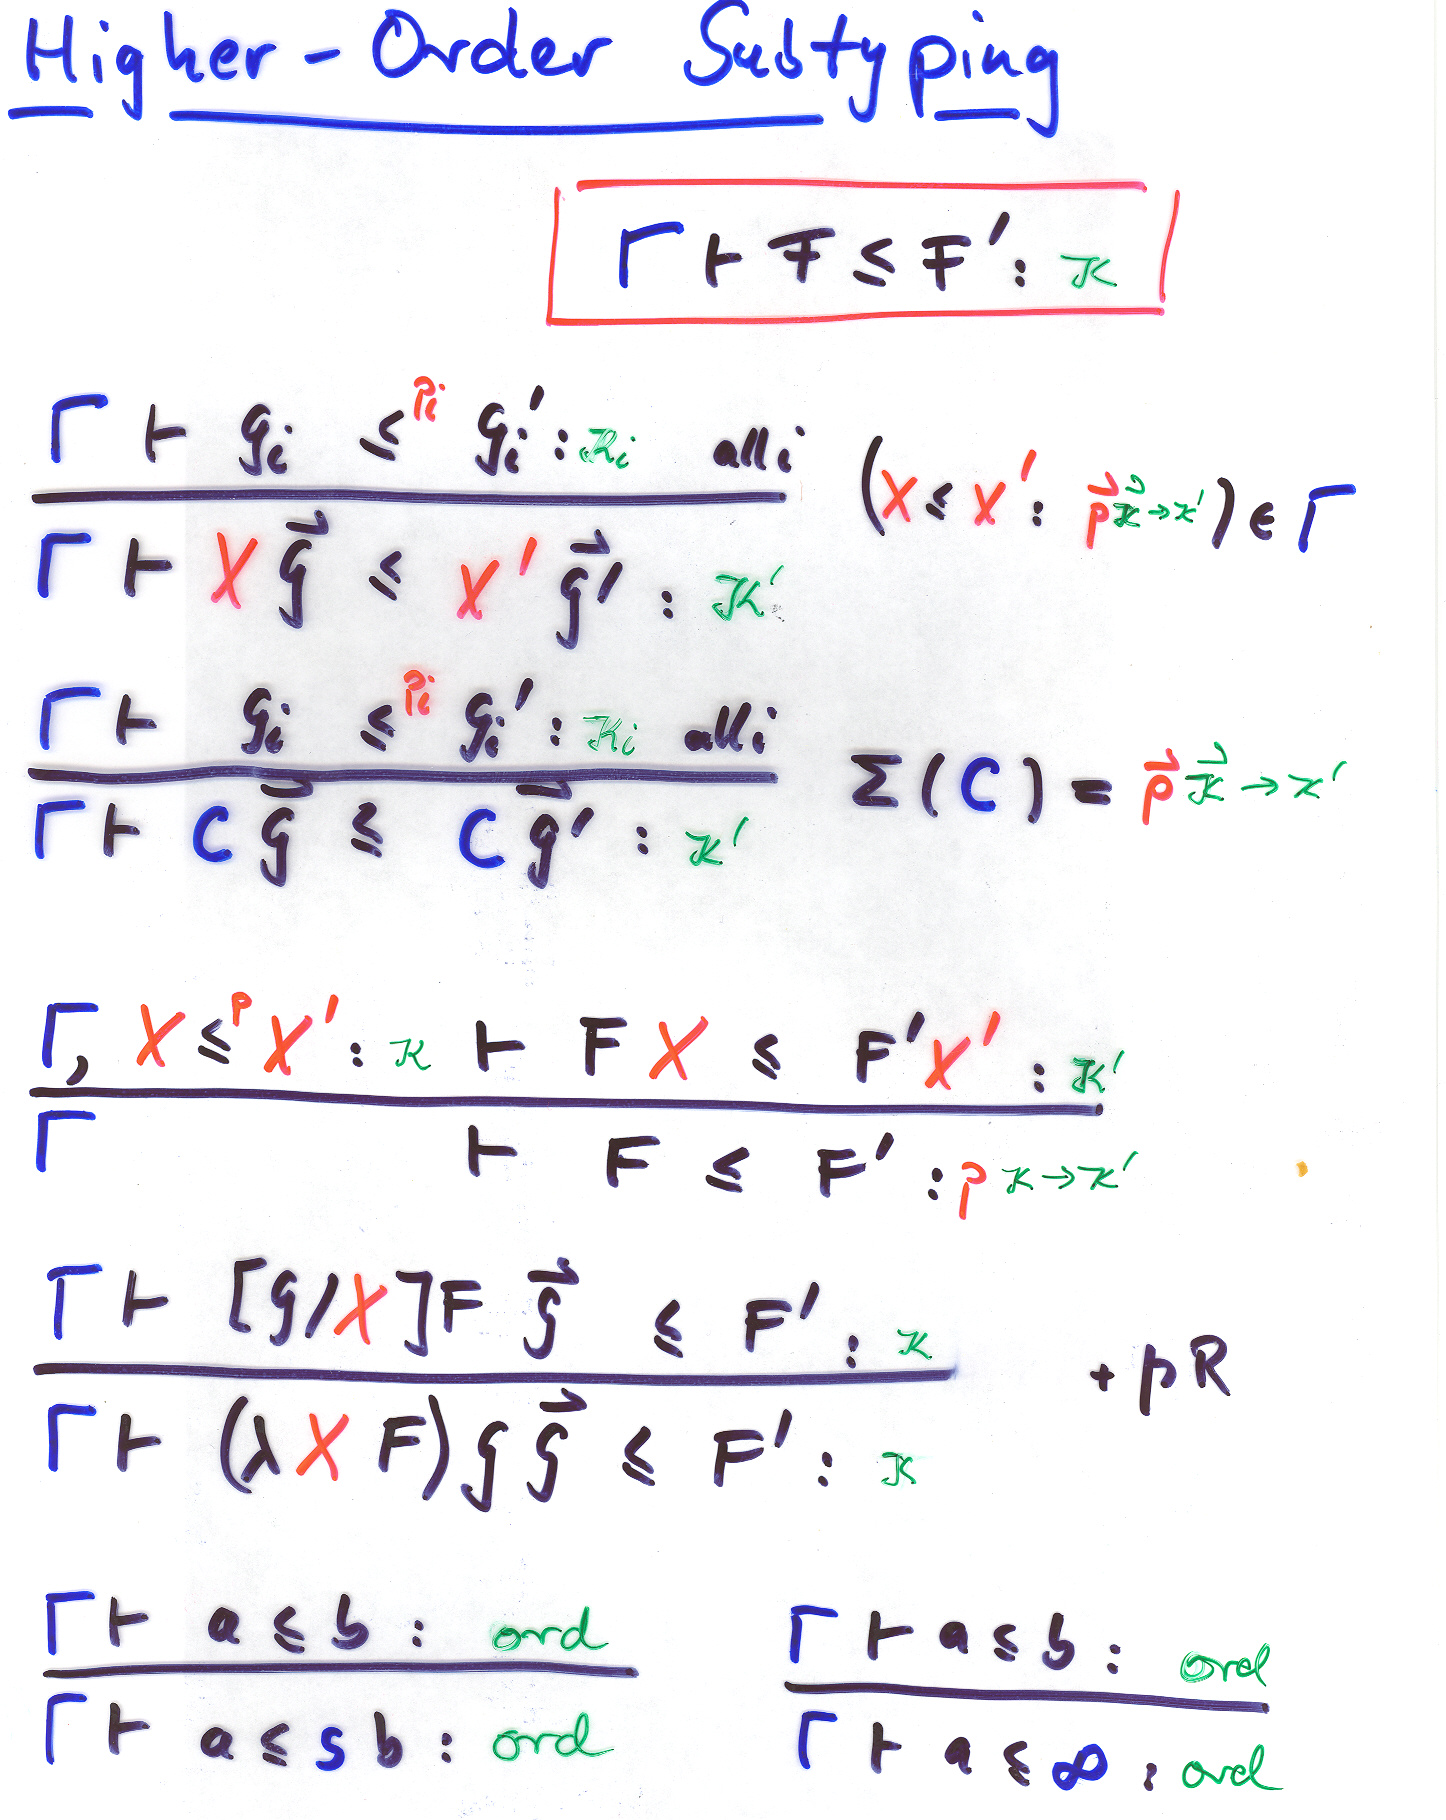 Higher-Order Subtyping
Γ ⊢ F ≤ F′ : κ
Γ ⊢ Gᵢ ≤^pᵢ Gᵢ′ : κᵢ all i
(X ≤ X′ : p⃗ κ⃗ → κ′) ∈ Γ
Γ ⊢ X G⃗ ≤ X′ G⃗′ : κ′
Γ ⊢ Gᵢ ≤^pᵢ Gᵢ′ : κᵢ all i
Σ(C) = p⃗ κ⃗ → κ′
Γ ⊢ C G⃗ ≤ C G⃗′ : κ′
Γ, X ≤^p X′ : κ ⊢ F X ≤ F′ X′ : κ′
Γ ⊢ F ≤ F′ : p κ → κ′
Γ ⊢ [G/X]F G⃗ ≤ F′ : κ
+ βR
Γ ⊢ (λ X F) G G⃗ ≤ F′ : κ
Γ ⊢ a ≤ b : ord
Γ ⊢ a ≤ b : ord
Γ ⊢ a ≤ s b : ord
Γ ⊢ a ≤ ∞ : ord